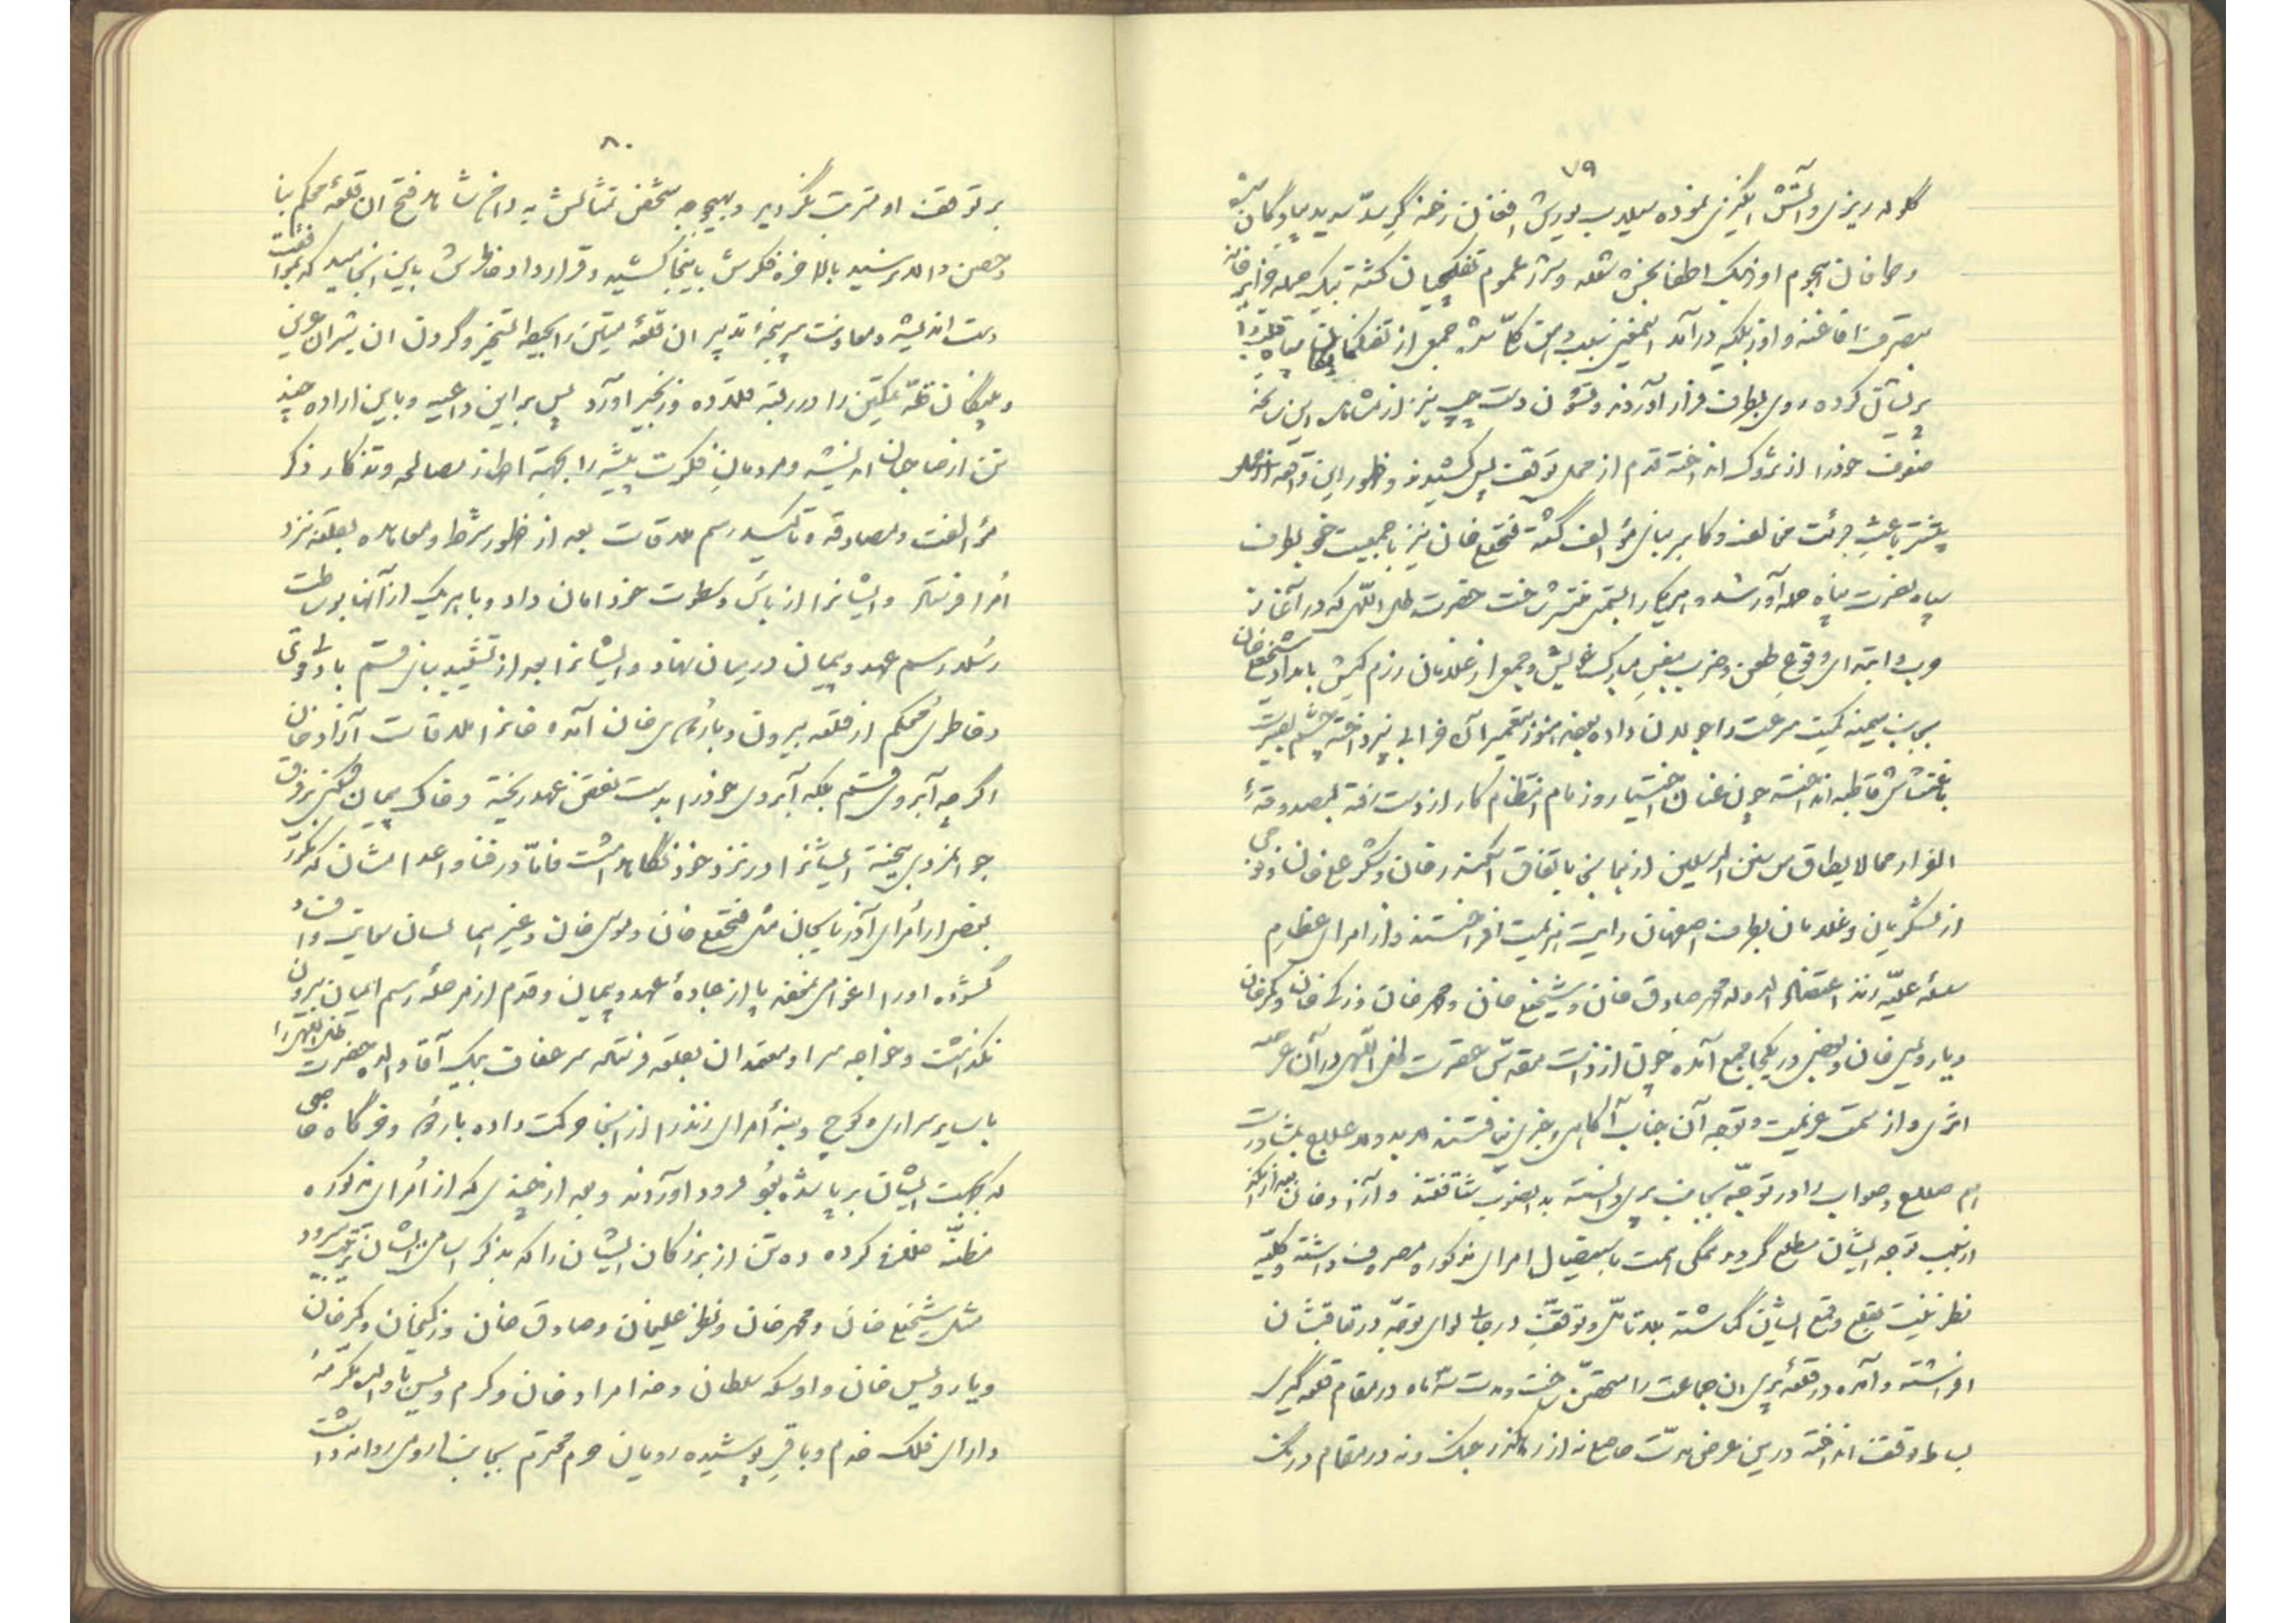 ۷۹
گلوله ریزی و آتش انگیزی نموده سیلاب یورش افغان رخنه گر سدّ سدید پیادگان شده
و طوفان هجوم اوزبک اطفا بخش شعله و شرار عموم تفنگچیان گشته بیک حمله جزایر خانه
بتصرف افاغنه و اوزبکیه درآمد اینمعنی سبب وهن کلّی شده جمعی از تفنگچیان سپاه قلب را
پریشان کرده روی بطرف فرار آوردند و قشون دست چپ نیز از مشاهده این سانحه
صفوف خودرا از تزوک انداخته قدم از محل توقف پس کشیدند و ظهور این واقعه
بیشتر باعث جرئت مخالف و کاسر مبانی مؤالف گشته فتحعلیخان نیز با جمعیت خود بطرف
سپاه نصرت پناه حمله آور شد و این کار را بیشتر ساخت حضرت ظل اللّهی که در آغاز
حرب و ابتدای وقوع طعن و ضرب بنفس مبارک خویش و جمعی از غلامان رزم کیش بامداد شیخعلیخان
بجانب میمنه کمیت سرعت را جولان داده بودند هنوز بتعمیر آن خرابی نپرداخته چشم بصیرت
باغتشاش قاطبه انداخته چون عنان اختیار و زمام انتظام کار از دست رفته بمصدوقهٔ
الفرار مما لا یطاق من سنن المرسلین از نیمه جانی باتفاق اسکندر خان و شکر علیخان و جمعی
از لشکریان و غلامان بطرف اصفهان رایت عزیمت افراختند و از امرای عظام
سلسلهٔ علیّه زند اعتضاد الدوله محمد صادق خان و شیخعلی خان و محمد خان و زکی خان و کرمخان
و یار ویس خان و بعضی در یکجا جمع آمده چون از ذات مقدّس حضرت ظل اللّهی در آن عرصه
اثری و از سمت عزیمت و توجه آن جناب آگاهی و خبری نیافتند لابد و لاعلاج بمشاورت
هم صلاح و صواب را در توجّه بجانب پری دانسته بدانصوب شتافتند و آزاد خان بعد از آنکه
از سبب توجه ایشان مطلع گردید همگی همت باستیصال امرای مذکوره مصروف داشته و کلیّه
نظر نیت بقلع و قمع ایشان گماشته بلا تأمّل و توقف در جا لوای توجّه در تعاقبشان
افراشته و آمده در قلعهٔ پری آن جماعت را متحصّن ساخت و مدت سه ماه در مقام قلعه گیری
بساط توقف انداخته درین عرض مدّت حاصلی نه از رهگذر جنگ و نه در مقام درنگ
۸۰
بر توقف او مترتب نگردید و بهیچوجه شخص تمثالش به داخل شاهد فتح آن قلعهٔ محکم بنا
و حصن والا نرسید بالاخره فکرش باینجا کشید و قرارداد خاطرش باین انجامید که بموافقت
دست اندیشه و معاونت سرپنجهٔ تدبیر آن قلعهٔ متین را بحیطه تسخیر و گردن آن شیران عرین
و پلنگان قلّه تمکین را در ربقه قلاده و زنجیر آورد پس بر این داعیه و باین اراده چند
تن از صاحبان اندیشه و مردمان فکرت پیشه را بجهة اطراز مصالحه و تذکار ذکر
مؤالفت و مصادقه و تاکید رسم ملاقات بعد از ظهور شرط و معاهده بقلعه نزد
أمرا فرستاد و ایشانرا از بأس و سطوت خود امان داد و با هریک از آنها بوساطت
رسل و رسم عهد و پیمان در میان نهاد و ایشانرا بعد از تشیید مبانی قسم با دلی قوی
و خاطری محکم از قلعه بیرون و باردوی خان آمده خانرا ملاقات آزاد خان
اگرچه آبروی قسم بلکه آبروی خودرا بدست نقض عهد ریخته و خاک پیمان شکنی بر فرق
جوانمردی بیخته ایشانرا در نزد خود نگاهداشت فامّا در خفا و اعدا مشان که مکرّر
بعضی از أمرای آذربایجان مثل فتحعلی خان و موسی خان و غیرهما لسان سعایت و افساد
گشوده او را اغرا می نمودند پا از جادهٔ عهد و پیمان و قدم از مرحلهٔ رسم ایمان بیرون
نگذاشت و خواجه سرا و معتمدان بقلعه فرستاده سر عفاف بیک آقا والده حضرت ظل اللهی را
با سایر سراری و کوچ و بنهٔ أمرای زند را از اینجا حرکت داده باردو و خرگاه خاصی
که بجهت ایشان برپا شده بود فرود آوردند و بعد از چندی که از أمرای مذکوره
مظنّه خلاف کرده ده تن از بزرگان ایشان را که بذکر اسامی ایشان ترتیب میرود
مثل شیخعلی خان و محمد خان و نظر علیخان و صادق خان و زکیخان و کرمخان
و یار ویس خان و اوسکه سلطان و خدا مراد خان و کرم ویس با والده مکرّمهٔ
دارای فلک خدم و باقی پوشیده رویان حرم محترم بجانب ارومی روانه داشت